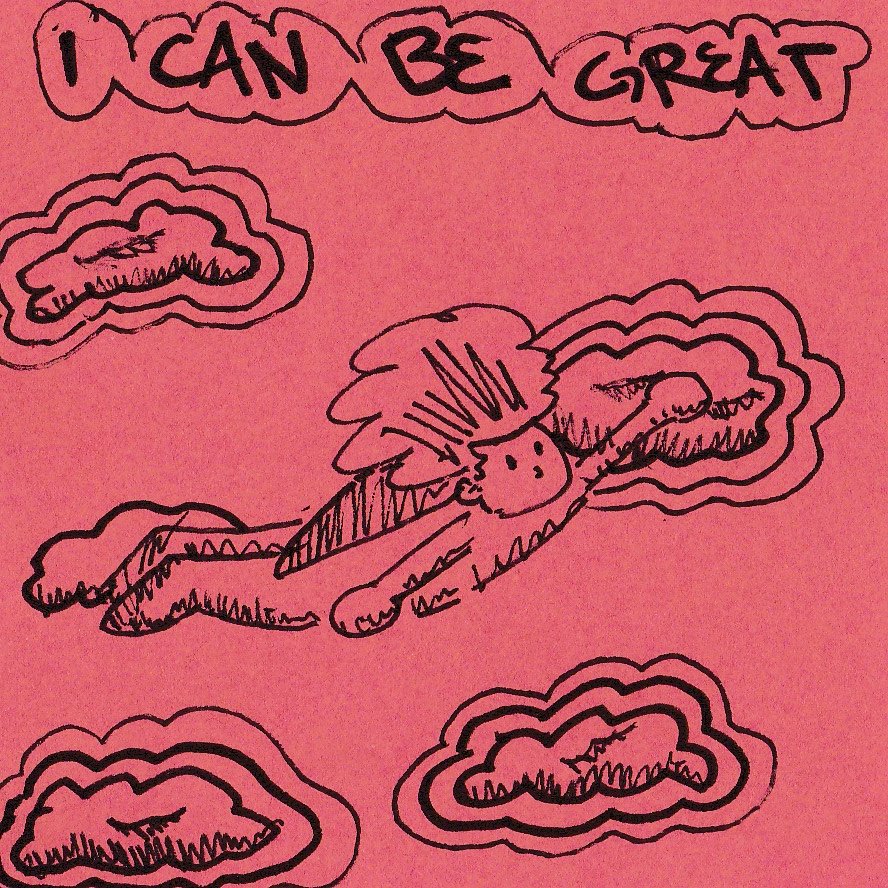 I CAN BE GREAT